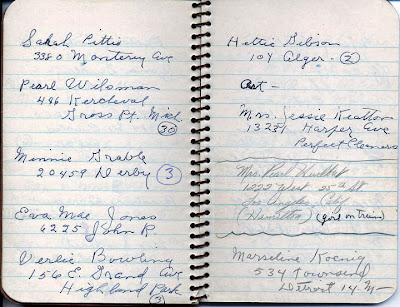 Sarah Pittis
3380 Monterey Ave
Pearl Wilsman
496 Kercheval
Gross Pt. Mich
30
Minnie Grable
20459 Derby 3
Eva Mae Jones
6275 John R.
Verlie Bowling
156 E. Grand Ave
Highland Park
(3)
Hettie Gibson
104 Alger - 2
Mrs. Jessie Keatton
13231 Harper Ave
Perfect Cleaners
Mrs. Pearl
1222 West 25th St
Los Angeles, Calif
(girl on train)
Marseline Koenig
534 Townsend
Detroit 14